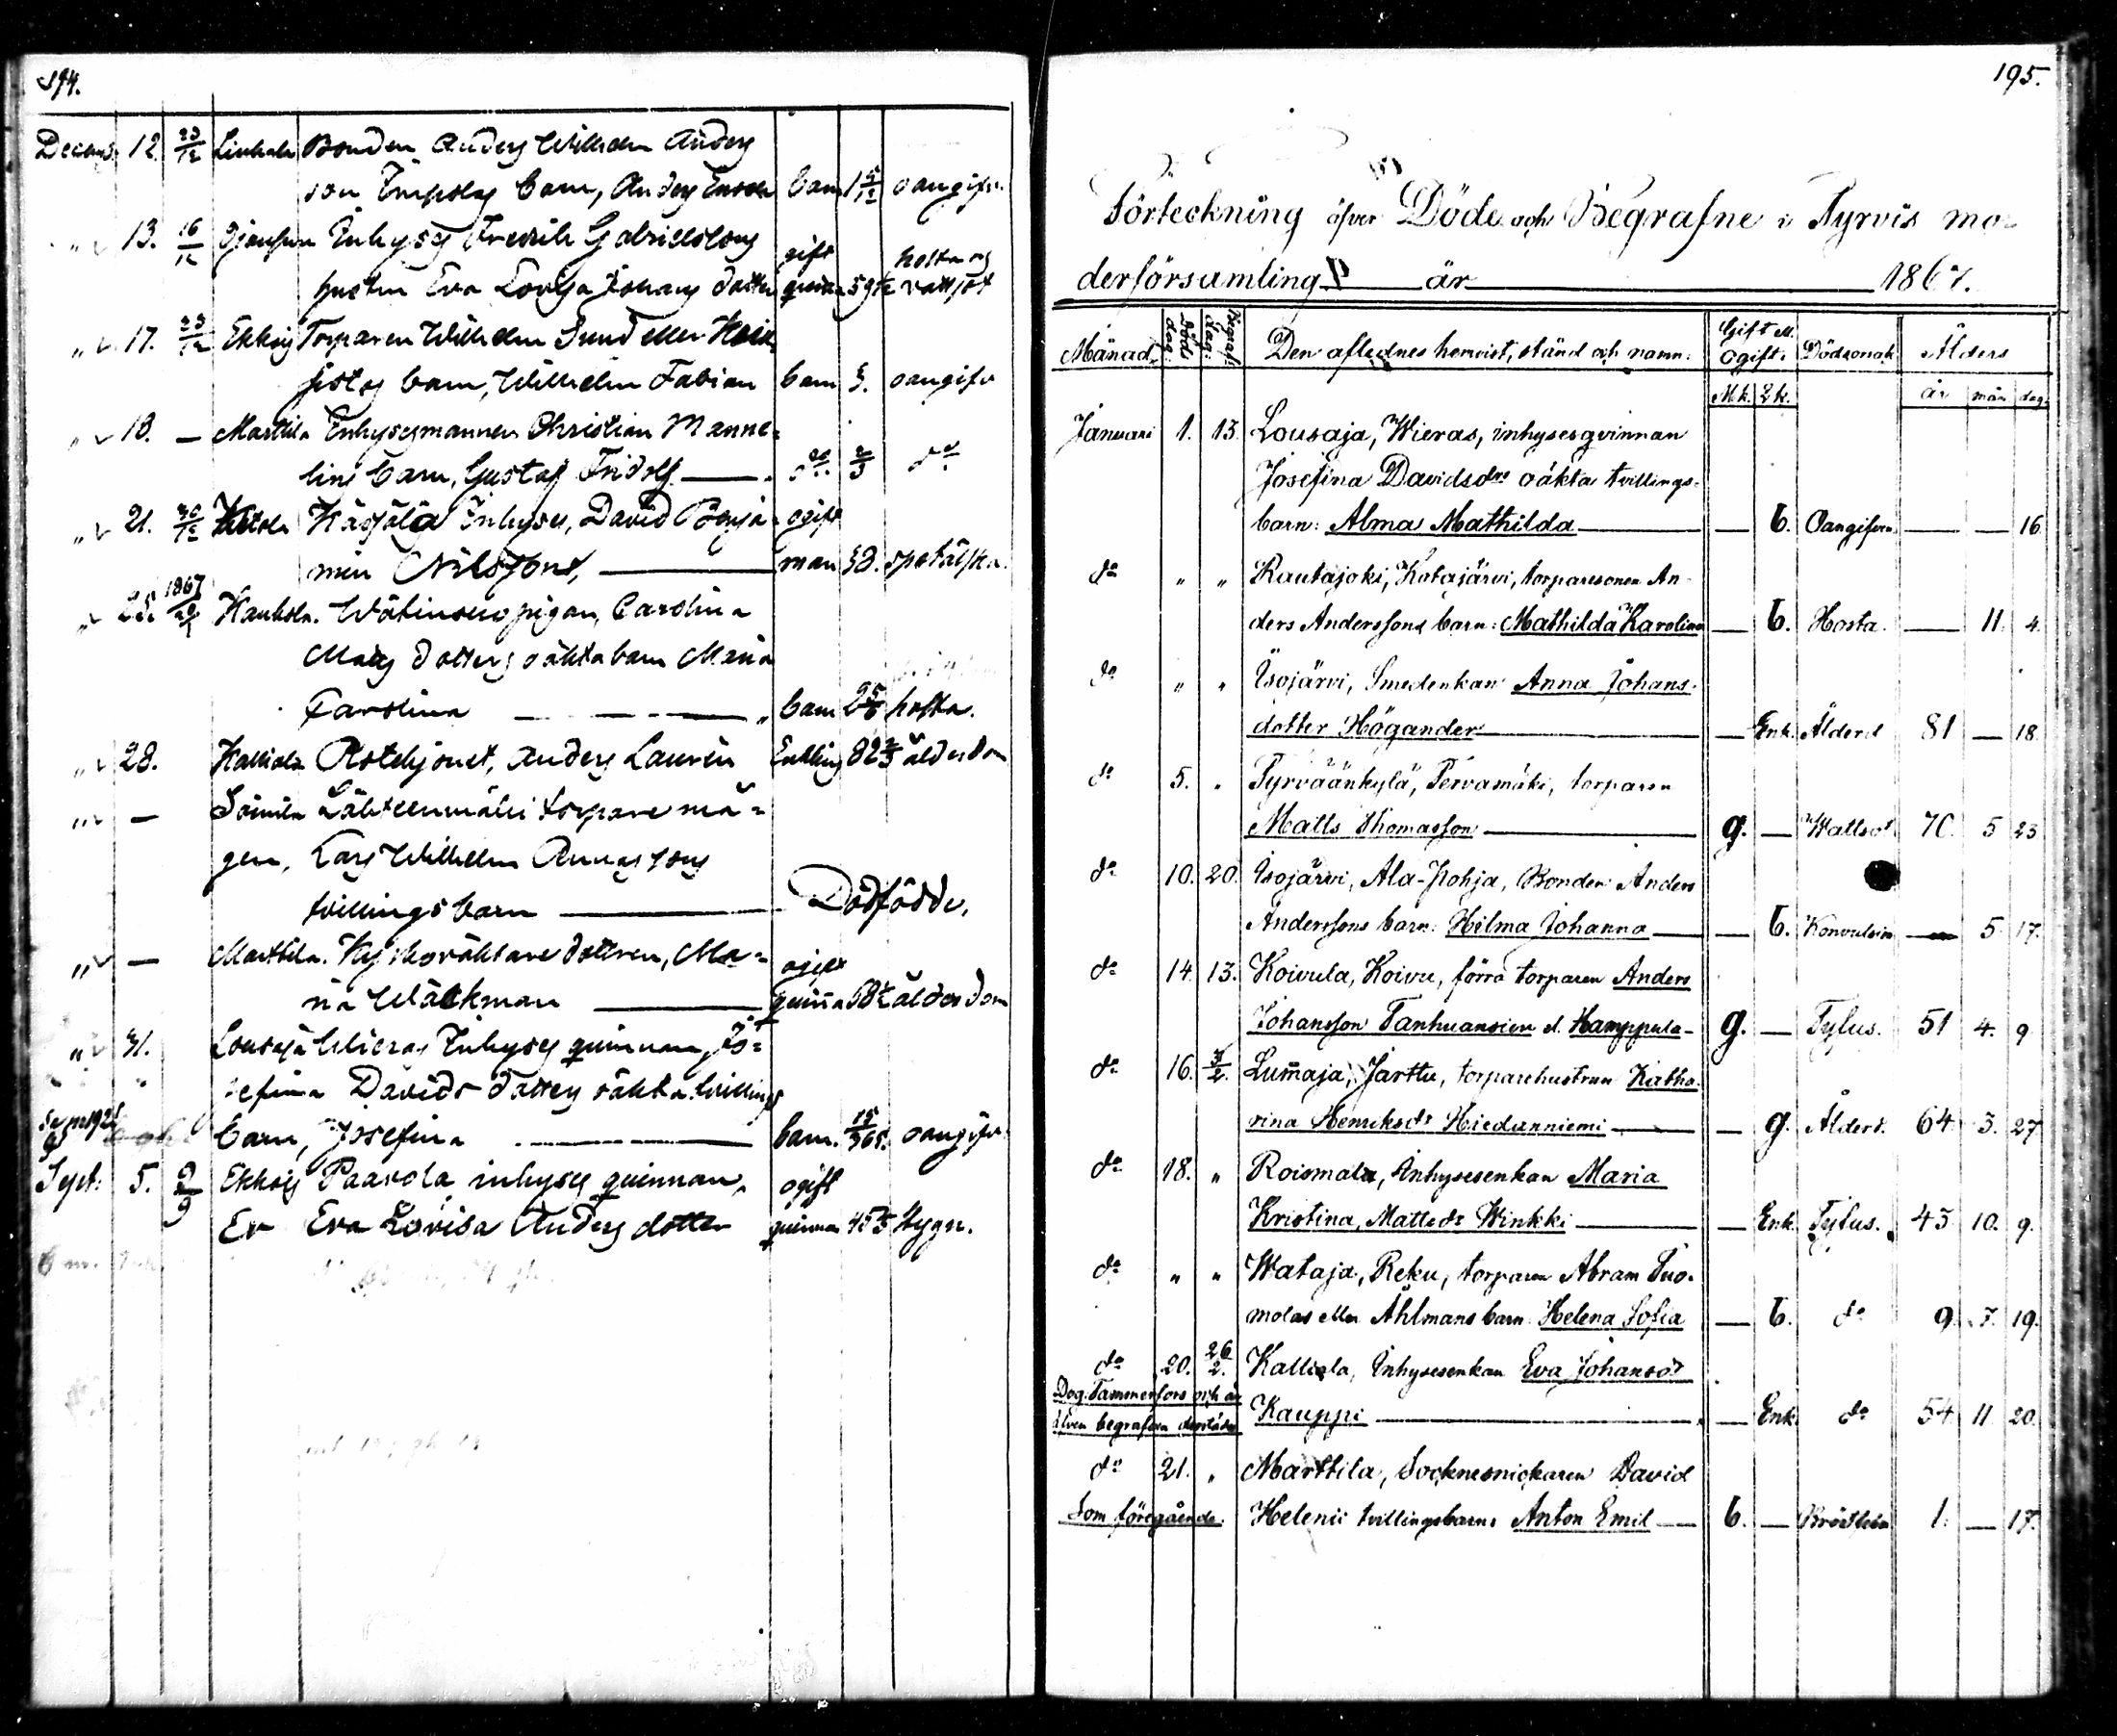 194.
Decemb. 12. 23/12 Liuhala Bonden Anders Wilhelm Anders
son Impolas barn, Anders Enok barn 1 5/12 oangifv.
" 13. 16/12 Inhyses Fredrik Gabrielssons gift hosta og
hustru Eva Lovisa Johans dotter qvinna 59 vattsot
" 17. 23/12 Ekkois Torparen Wilhelm Sund eller Heik
barn, Wilhelm Fabian barn oangifv
" 18. — Marttila Inhysesmannen Christian Manne-
lins barn, Gustaf Fridolf — do 2/3 do
" 21. 30/12 Inhyses, David Benja- ogift
min Nilssons, — man 38. spetälska.
" 25. 1867 20/1 Kaukola. pigan, Carolina
Mats dotters oäkta barn Maria
Carolina — barn hosta.
" 28. Kalliala Rotehjonet, Anders Laurén Enkling 82 2/3 ålderdom
" — Soinila Lähteenmäki torpare må-
gen, Lars Wilhelm Annas sons
tvillingsbarn — Dödfödde.
" — Marttila. Kyrkoväktare dottren, Ma- ogift
ria Wäckman — qvinna ålderdom
" 31. Lousaja Wieras Inhyses qvinnan, Jo-
sefina Davids dotters oäkta tvillings
barn, Josefina — barn. 15/365. oangifv.
Sept: 5. 9/9 Ekkois Paavola inhyses qvinnan, ogift
Ev Eva Lovisa Anders dotter qvinna 45 stygn.
195.
Förteckning öfver Döde och Begrafne i Tyrvis mo-
derförsamling år 1867.
Månad. Döds dag: Begraf: dag: Den aflednes hemvist, stånd och namn: Gift el. ogift: Dödsorsak Ålders
Mk. Qk. år mån dag.
Januari 1. 13. Lousaja, Wieras, inhysesqvinnan
Josefina Davidsdrs oäkta tvillings-
barn: Alma Mathilda — — b. Oangifven — — 16.
do " " Rautajoki, Kotajärvi, torparesonen An-
ders Anderssons barn: Mathilda Karolina — b. Hosta. — 11. 4.
do " " Isojärvi, Smedenkan Anna Johans-
dotter Högander — — Enk. Ålderd. 81 — 18.
do 5. " Tyrväänkylä, Tervamäki, torparen
Matts Thomasson — g. — Wattsot. 70. 5 23
do 10. 20. Isojärvi, Ala-Pohja, Bonden Anders
Anderssons barn: Hilma Johanna — — b. Konvulsion — 5. 17.
do 14. 13. Koivula, Koivu, förra torparen Anders
Johansson Tanhuansuu el. Hamppula — g. — Tyfus. 51 4. 9
do 16. 3/2. Lum̄aja, Jarttu, torparehustrun Katha-
rina Henriksdr Hiedanniemi — — g. Ålderd. 64. 3. 27
do 18. " Roismala, Inhysesenkan Maria
Kristina, Mattsdr Winkki — — Enk. Tyfus. 43 10. 9.
do " " Wataja, Reku, torparen Abram Tuo-
molas eller Åhlmans barn: Helena Sofia — b. do 9. 7. 19.
do 20. 26/2. Kalliala, Inhysesenkan Eva Johansdr
Dog i Tammerfors och är
äfven begrafven derstädes Kauppi — — Enk. do 54. 11. 20.
do 21. " Marttila, Socknesnickaren David
Som föregående. Helenii tvillingsbarn: Anton Emil — b. — Bröstfeber 1. — 17.